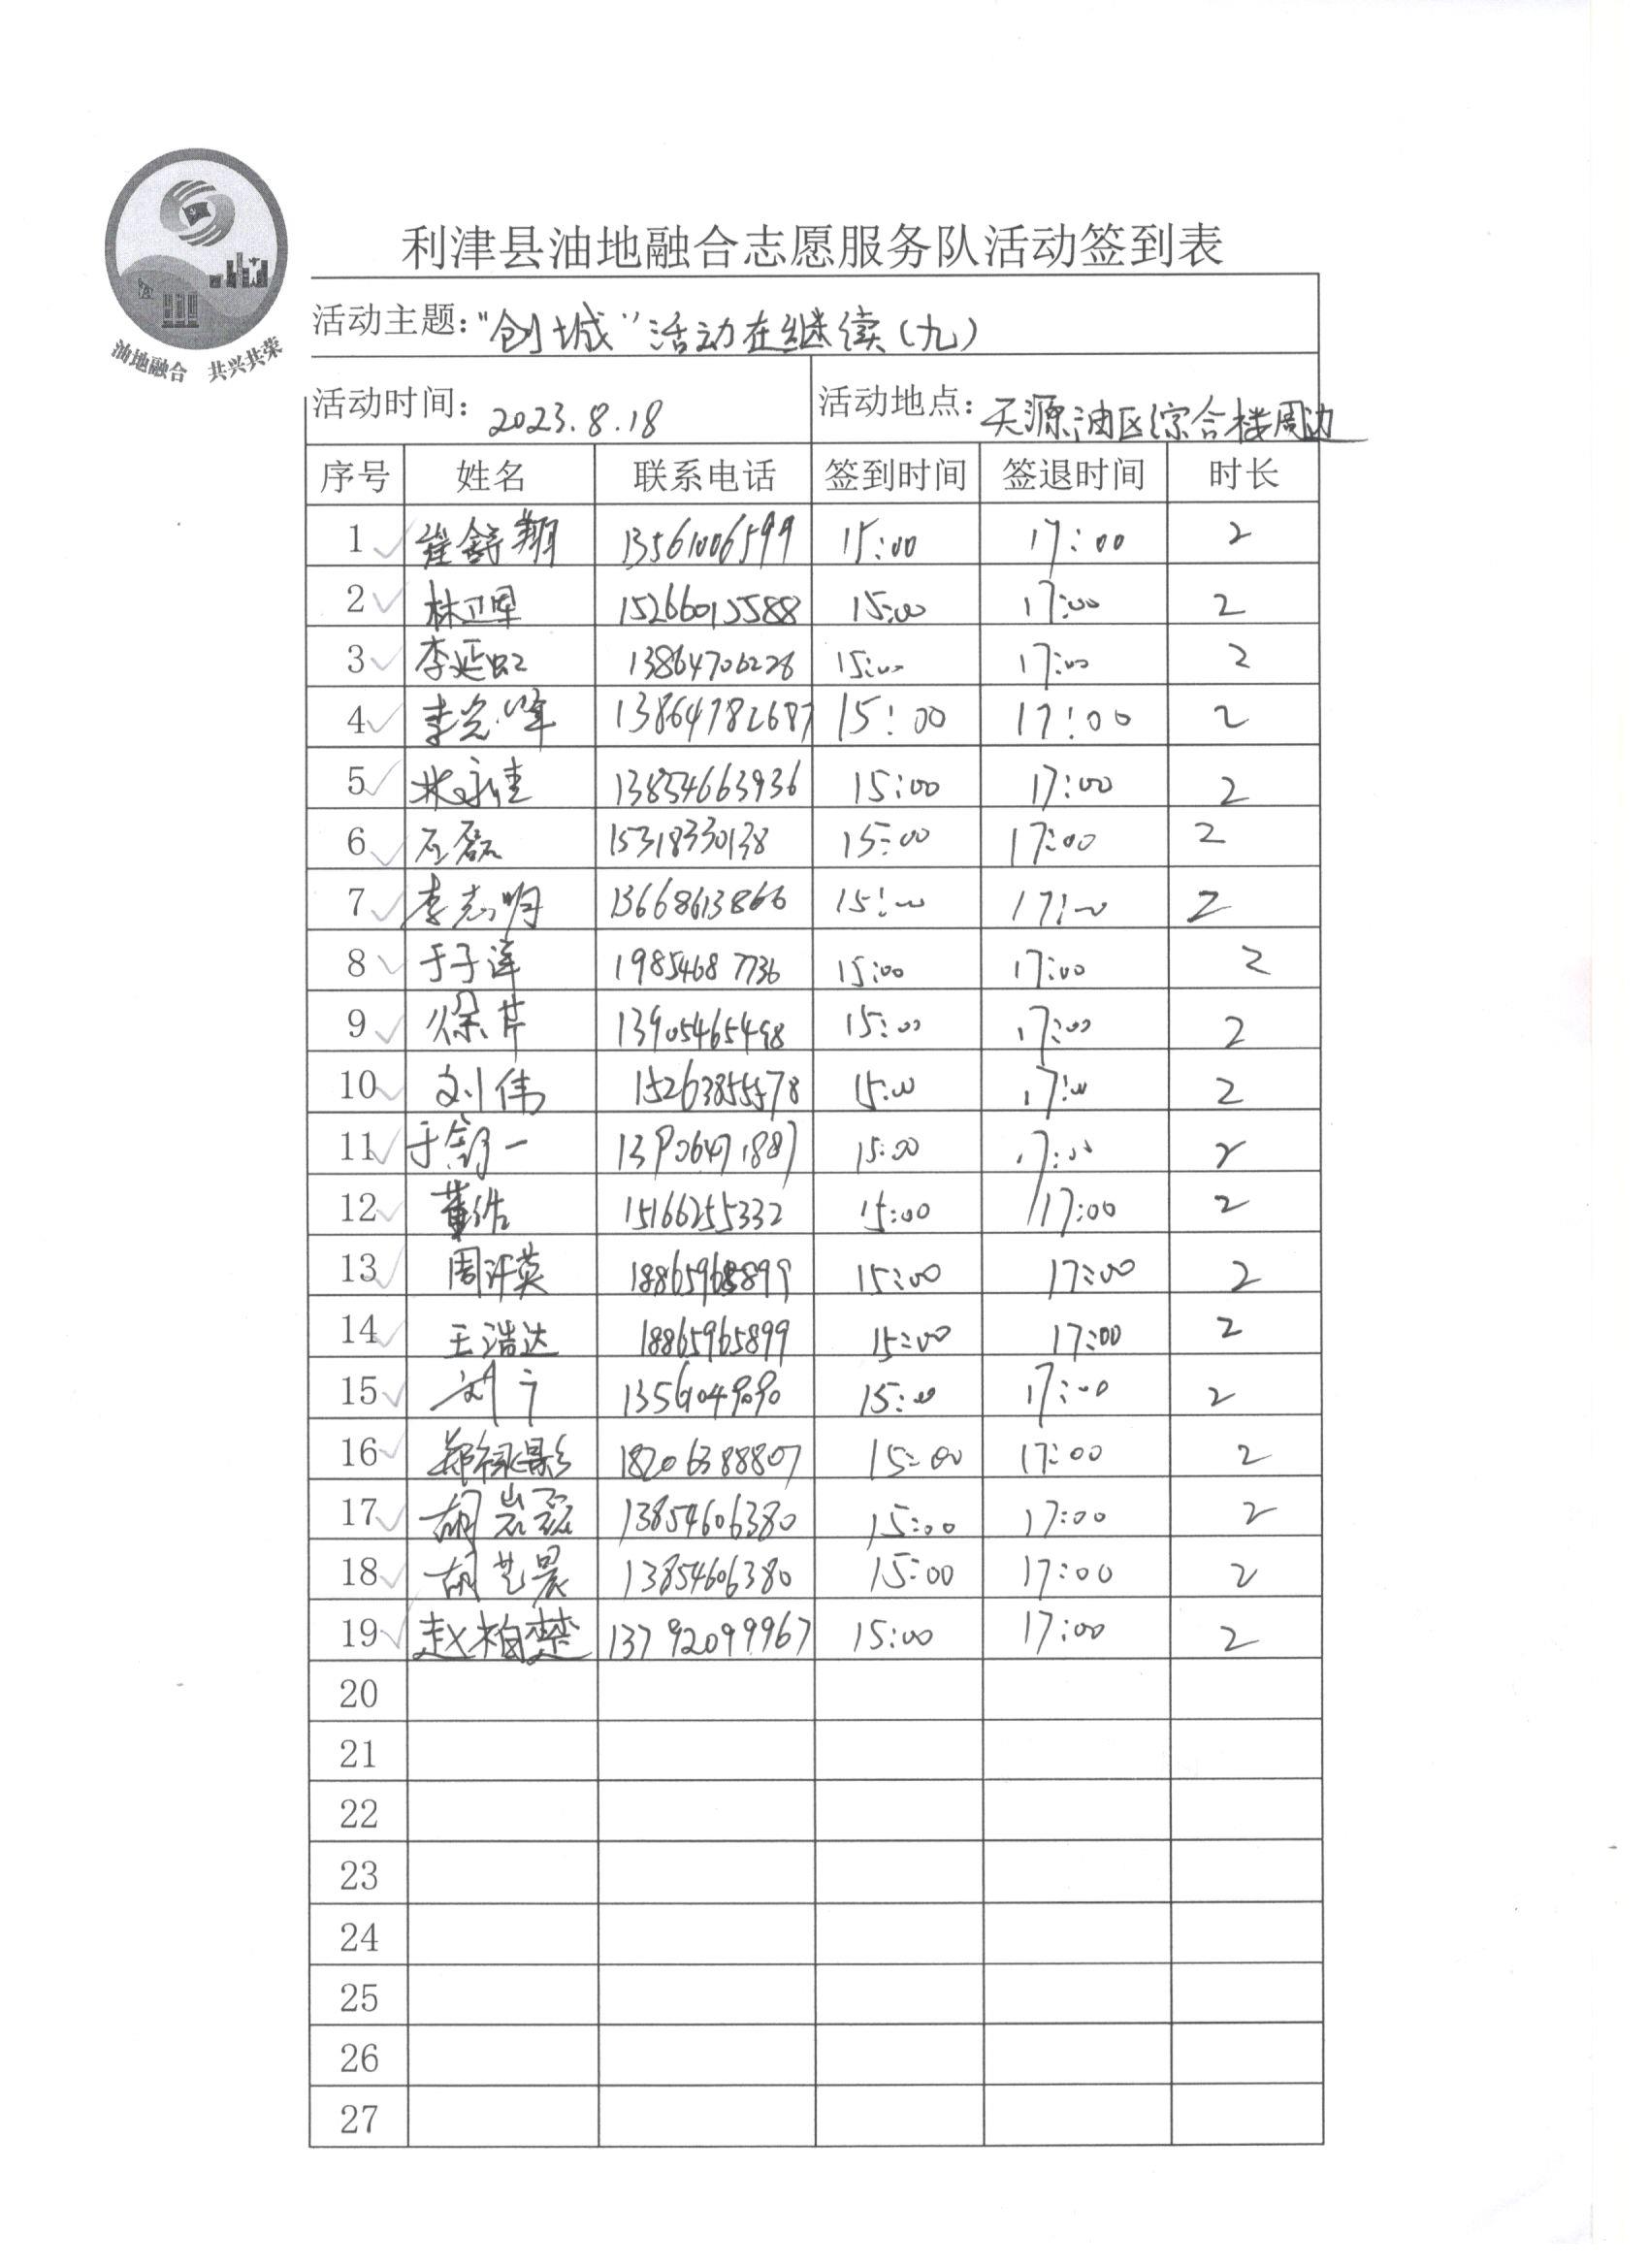 利津县油地融合志愿服务队活动签到表
油地融合 共兴共荣
活动主题："创城"活动在继续(九)
活动时间：2023.8.18 活动地点：天源油区综合楼周边
序号 姓名 联系电话 签到时间 签退时间 时长
1 崔舒翔 13561006599 15:00 17:00 2
2 林卫军 15266015588 15:00 17:00 2
3 李延虹 13864706228 15:00 17:00 2
4 李光峰 13864782687 15:00 17:00 2
5 13854663936 15:00 17:00 2
6 石磊 15318330138 15:00 17:00 2
7 李志明 13668613866 15:00 17:00 2
8 于子涟 19854687736 15:00 17:00 2
9 徐芹 13905465498 15:00 17:00 2
10 刘伟 15263855578 15:00 17:00 2
11 15:00 17:00 2
12 董浩 15166255332 15:00 17:00 2
13 周许英 18865965899 15:00 17:00 2
14 王浩达 18865965899 15:00 17:00 2
15 15:00 17:00 2
16 郑禄影 18206388807 15:00 17:00 2
17 胡岩磊 13854606380 15:00 17:00 2
18 胡艺晨 13854606380 15:00 17:00 2
19 赵柏楚 13792099967 15:00 17:00 2
20
21
22
23
24
25
26
27